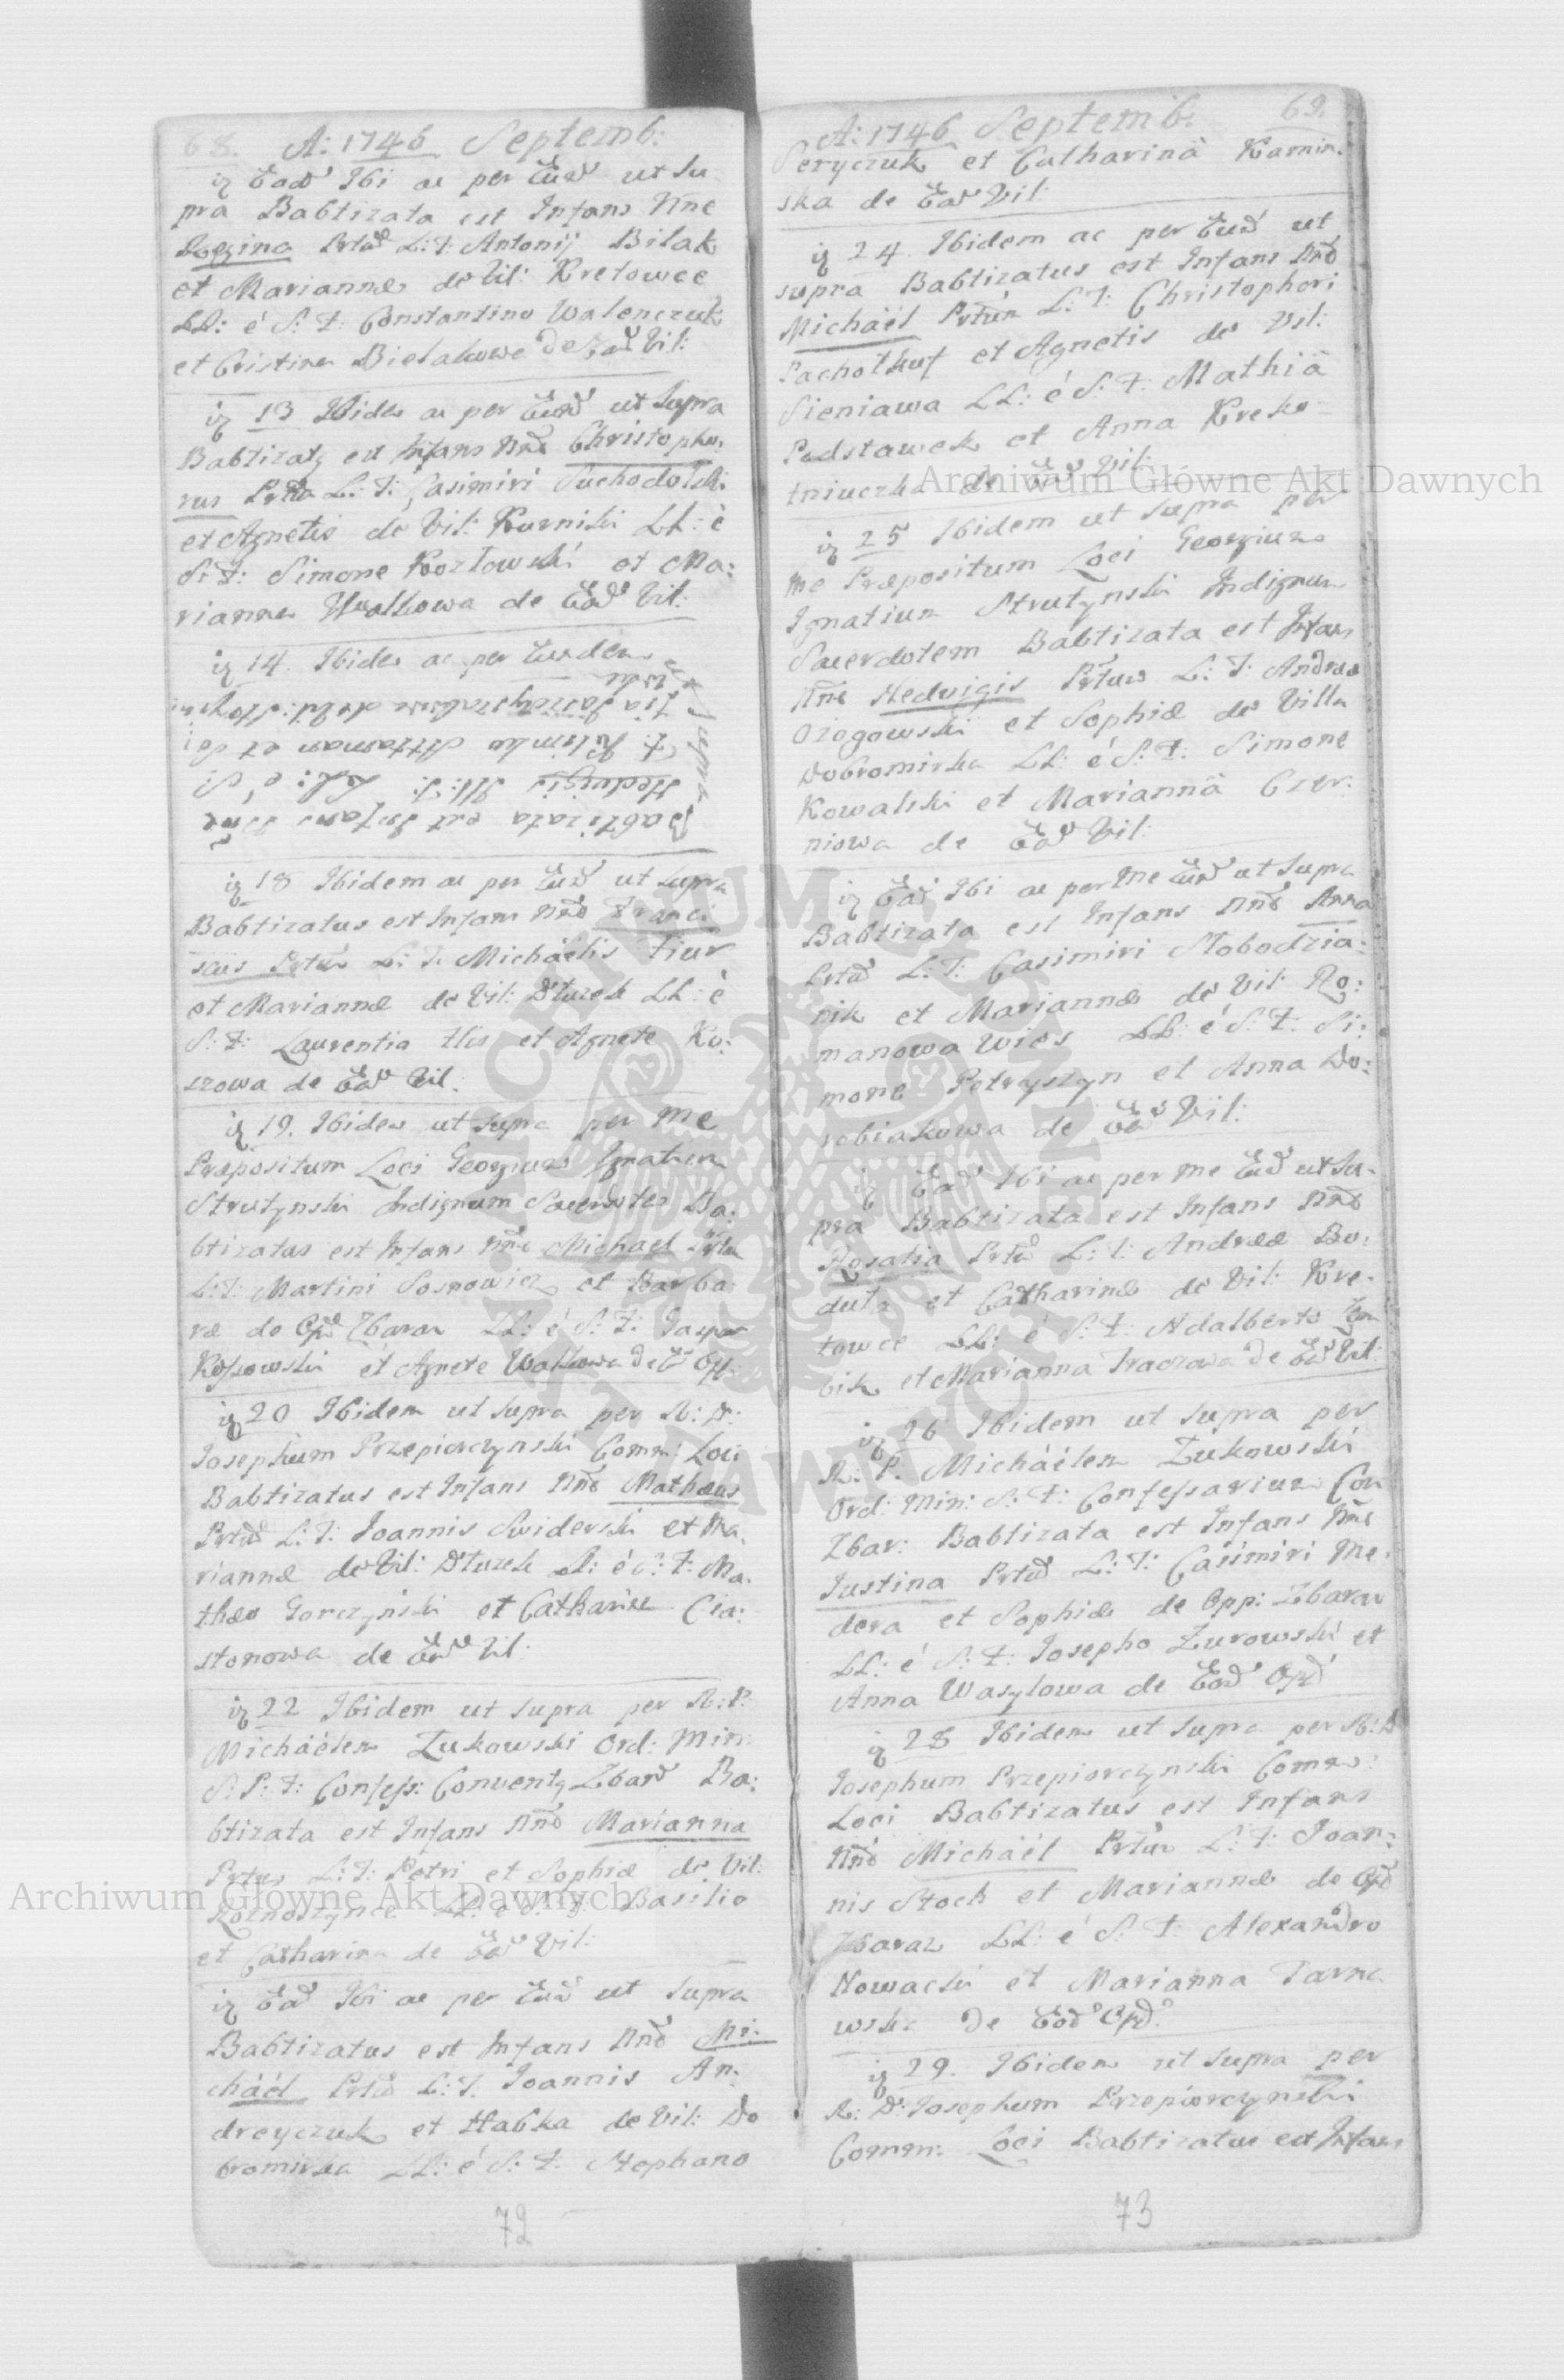 68. A: 1746 Septemb:
ią Ead Ibi ac per Eund ut Su-
pra Babtizata est Infans Nne
Regina Prtu L: T: Antonij Bilak
et Mariannæ de Vil: Kretowce
LL: é S: F: Constantino Walenczuk
et Cristina Bielakowa de Ead Vil:
ią 13 Ibidem ac per Eund ut Supra
Babtizatą est Infans Nne Christopho:
rus Prtu L: T: Casimiri Suchodolski
et Agnetis de Vil: Kurniki LL: è
S: F: Simone Kozłowski et Ma:
rianna Wołkowa de Ead Vil:
ią 14. Ibidem ac per Eundem
ut Supra
Babtizata est Infans Nne
Hedvigis Ill: I: LL: e S:
F: et
de Vil:
ią 18 Ibidem ac per Eund ut Supra
Babtizatus est Infans Nne Franci
scus Prtu L: T: Michaëlis Fiur
et Mariannæ de Vil: Dłuzek LL: è
S: F: Laurentio Ilis et Agnete Ko:
szowa de Ead Vil:
ią 19. Ibidem ut Supra per Me
Præpositum Loci Georgium Ignatium
Strutynski Indignum Sacerdotem Ba:
btizatus est Infans Nne Michael Prtu
L: T: Martini Sosnowicz et Barba:
ræ de Opd Zbaraz LL: é S: F: Gaspar
Kossowski et Agnete Wałkowa de E Op:
ią 20 Ibidem ut Supra per R: D:
Iosephum Przepiorczynski Comm: Loci
Babtizatus est Infans Nne Mathæus
Prtu L: T: Ioannis Swiderski et Ma.
riannæ de Vil: Dłuzek LL: é S: F: Ma.
thæo Gorczynski et Catharina Cia:
stonowa de Ead Vil:
ią 22 Ibidem ut Supra per R: P:
Michaëlem Zukowski Ord: Min:
S: P: F: Confess: Conventą Zbar Ba:
btizata est Infans Nne Marianna
Prtu L: T: Petri et Sophiæ de Vil:
Roznoszynce LL: é S: F: Basilio
et Catharina de Ead Vil:
ią Ead Ibi ac per Eund ut Supra
Babtizatus est Infans Nne Mi:
chaël Prtu L: T. Ioannis An:
dreyczuk et Habka de Vil: Do
bromirka LL: é S: F: Stephano
72
A: 1746 Septemb: 69.
Seryczuk et Catharinâ Kamin:
ska de Ead Vil:
ią 24. Ibidem ac per Eund ut
supra Babtizatus est Infans Nne
Michaël Prtu L: T: Christophori
et Agnetis de Vil:
Sieniawa LL: é S: F: Mathiâ
Podstawek et Anna Kreko-
tniuczka de Ead Vil:
ią 25 Ibidem ut supra per
me Præpositum Loci Georgium
Ignatium Strutynski Indignum
Sacerdotem Babtizata est Infans
Nne Hedvigis Prtum L: T: Andreæ
Ozogowski et Sophiæ de Villa
Dobromirka LL: é S: F: Simone
Kowalski et Mariannâ Czer:
niowa de Ead Vil:
ią Ead Ibi ac per Me Eund ut Supra
Babtizata est Infans Nne Anna
Prtu L: T: Casimiri Słobodzia:
nik et Mariannæ de Vil: Ro:
manowa Wies LL: é S: F: Si:
mone Petryszyn et Anna Do:
robiakowa de Ead Vil:
ią Ead Ibi ac per me Eund ut Su-
pra Babtizata est Infans Nne
Rosalia Prtu L: T: Andreæ Bo:
duła et Catharinæ de Vil: Kre-
towce LL: é S: F: Adalberto
bik et Marianna Tkaczowa de Ead Vil:
ią 26 Ibidem ut Supra per
R: P. Michaëlem Zukowski
Ord: Min: S: F: Confessarium Con
Zbar: Babtizata est Infans Nne
Iustina Prtu L: T: Casimiri Me.
dera et Sophiæ de Opp: Zbaraz
LL: é S: F: Iosepho Zurowski et
Anna Wasylowa de Eod Opd
ią 28 Ibidem ut Supra per R: D
Iosephum Przepiorczynski Comm:
Loci Babtizatus est Infans
Nne Michaël Prtum L: T: Ioan:
nis Stoch et Mariannæ de Opd
Zbaraz LL: é S: F: Alexandro
Nowacki et Marianna Tarna
wska de Eod Opd:
ią 29. Ibidem ut Supra per
R: D: Iosephum Przepiorczynski
Comm: Loci Babtizatus est Infans
73
Archiwum Główne Akt Dawnych
Archiwum Główne Akt Dawnych
ARCHIWUM GŁÓWNE AKT DAWNYCH